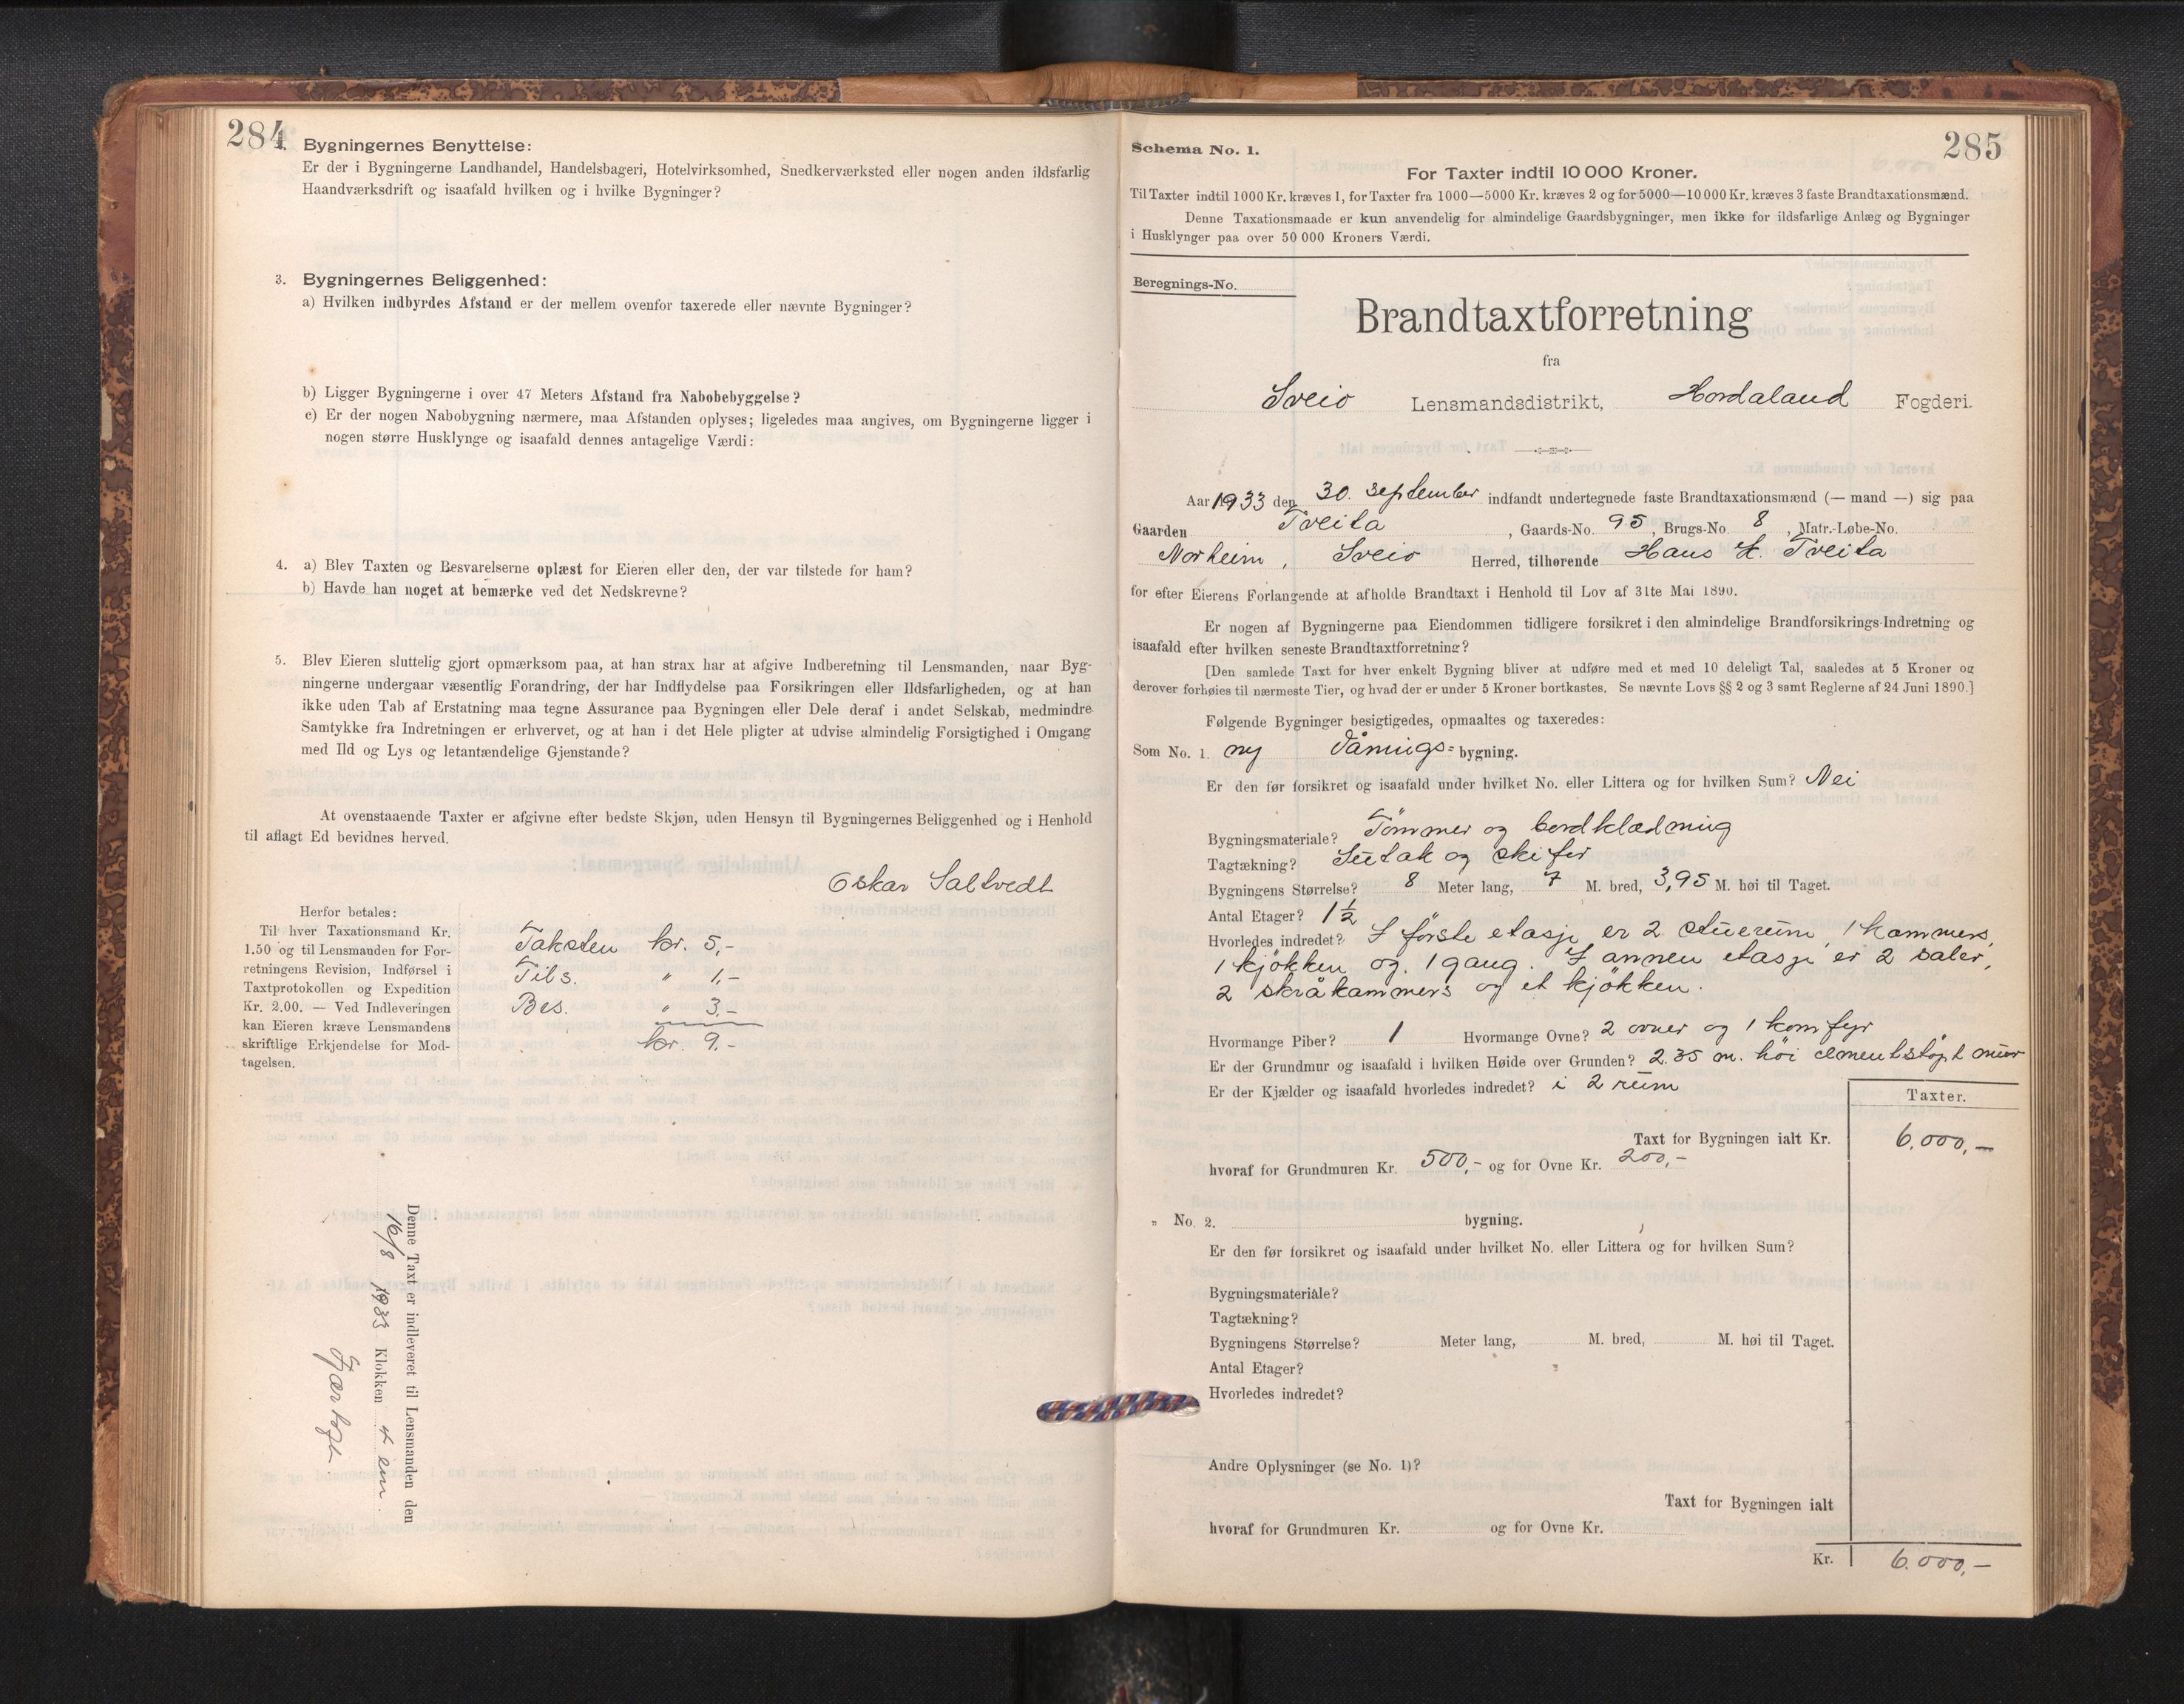 284
Bygningernes Benyttelse:
Er der i Bygningerne Landhandel, Handelsbageri, Hotelvirksomhed, Snedkerværksted eller nogen anden ildsfarlig
Haandværksdrift og isaafald hvilken og i hvilke Bygninger?
3. Bygningernes Beliggenhed:
a) Hvilken indbyrdes Afstand er der mellem ovenfor taxerede eller nævnte Bygninger?
b) Ligger Bygningerne i over 47 Meters Afstand fra Nabobebyggelse?
c) Er der nogen Nabobygning nærmere, maa Afstanden oplyses; ligeledes maa angives, om Bygningerne ligger i
nogen større Husklynge og isaafald dennes antagelige Værdi:
4. a) Blev Taxten og Besvarelserne oplæst for Eieren eller den, der var tilstede for ham?
b) Havde han noget at bemærke ved det Nedskrevne?
5. Blev Eieren sluttelig gjort opmærksom paa, at han strax har at afgive Indberetning til Lensmanden, naar Byg-
ningerne undergaar væsentlig Forandring, der har Indflydelse paa Forsikringen eller Ildsfarligheden, og at han
ikke uden Tab af Erstatning maa tegne Assurance paa Bygningen eller Dele deraf i andet Selskab, medmindre
Samtykke fra Indretningen er erhvervet, og at han i det Hele pligter at udvise almindelig Forsigtighed i Omgang
med Ild og Lys og letantændelige Gjenstande?
At ovenstaaende Taxter er afgivne efter bedste Skjøn, uden Hensyn til Bygningernes Beliggenhed og i Henhold
til aflagt Ed bevidnes herved.
Oskar Saltvedt
Herfor betales:
Til hver Taxationsmand Kr.
1.50 og til Lensmanden for For-
retningens Revision, Indførsel i
Taxtprotokollen og Expedition
Kr. 2.00. — Ved Indleveringen
kan Eieren kræve Lensmandens
skriftlige Erkjendelse for Mod-
tagelsen.
Taksten kr. 5,-
Tils. " 1,-
Bes. " 3,-
kr. 9,-
Denne Taxt er indleveret til Lensmanden den
16/8 1933 Klokken 4 em.
285
Schema No. 1.
For Taxter indtil 10 000 Kroner.
Til Taxter indtil 1000 Kr. kræves 1, for Taxter fra 1000—5000 Kr. kræves 2 og for 5000—10 000 Kr. kræves 3 faste Brandtaxationsmænd.
Denne Taxationsmaade er kun anvendelig for almindelige Gaardsbygninger, men ikke for ildsfarlige Anlæg og Bygninger
i Husklynger paa over 50 000 Kroners Værdi.
Beregnings-No.
Brandtaxtforretning
fra
Sveio Lensmandsdistrikt, Hordaland Fogderi.
Aar 1933 den 30. september indfandt undertegnede faste Brandtaxationsmænd (— mand —) sig paa
Gaarden Tveita, Gaards-No. 95, Brugs-No. 8, Matr.-Løbe-No.
Norheim, Sveio Herred, tilhørende Hans H. Tveita
for efter Eierens Forlangende at afholde Brandtaxt i Henhold til Lov af 31te Mai 1890.
Er nogen af Bygningerne paa Eiendommen tidligere forsikret i den almindelige Brandforsikrings-Indretning og
isaafald efter hvilken seneste Brandtaxtforretning?
[Den samlede Taxt for hver enkelt Bygning bliver at udføre med et med 10 deleligt Tal, saaledes at 5 Kroner og
derover forhøies til nærmeste Tier, og hvad der er under 5 Kroner bortkastes. Se nævnte Lovs §§ 2 og 3 samt Reglerne af 24 Juni 1890.]
Følgende Bygninger besigtigedes, opmaaltes og taxeredes:
Som No. 1. ny Vånings= bygning.
Er den før forsikret og isaafald under hvilket No. eller Littera og for hvilken Sum? Nei
Bygningsmateriale? Tømmer og bordklædning
Tagtækning? Sutak og skifer
Bygningens Størrelse? 8 Meter lang, 7 M. bred, 3,95 M. høi til Taget.
Antal Etager? 1½
Hvorledes indredet? I første etasje er 2 stuerum, 1 kammers,
1 kjøkken og 1 gang. I annen etasje er 2 saler,
2 skråkammers og et kjøkken.
Hvormange Piber? 1 Hvormange Ovne? 2 ovner og 1 komfyr
Er der Grundmur og isaafald i hvilken Høide over Grunden? 2.35 m. høi cementstøpt mur
Er der Kjælder og isaafald hvorledes indredet? i 2 rum
Taxter.
Taxt for Bygningen ialt Kr. 6.000,—
hvoraf for Grundmuren Kr. 500,- og for Ovne Kr. 200,-
" No. 2. bygning.
Er den før forsikret og isaafald under hvilket No. eller Littera og for hvilken Sum?
Bygningsmateriale?
Tagtækning?
Bygningens Størrelse? Meter lang, M. bred, M. høi til Taget.
Antal Etager?
Hvorledes indredet?
Andre Oplysninger (se No. 1)?
Taxt for Bygningen ialt
hvoraf for Grundmuren Kr. og for Ovne Kr.
Kr. 6.000,—